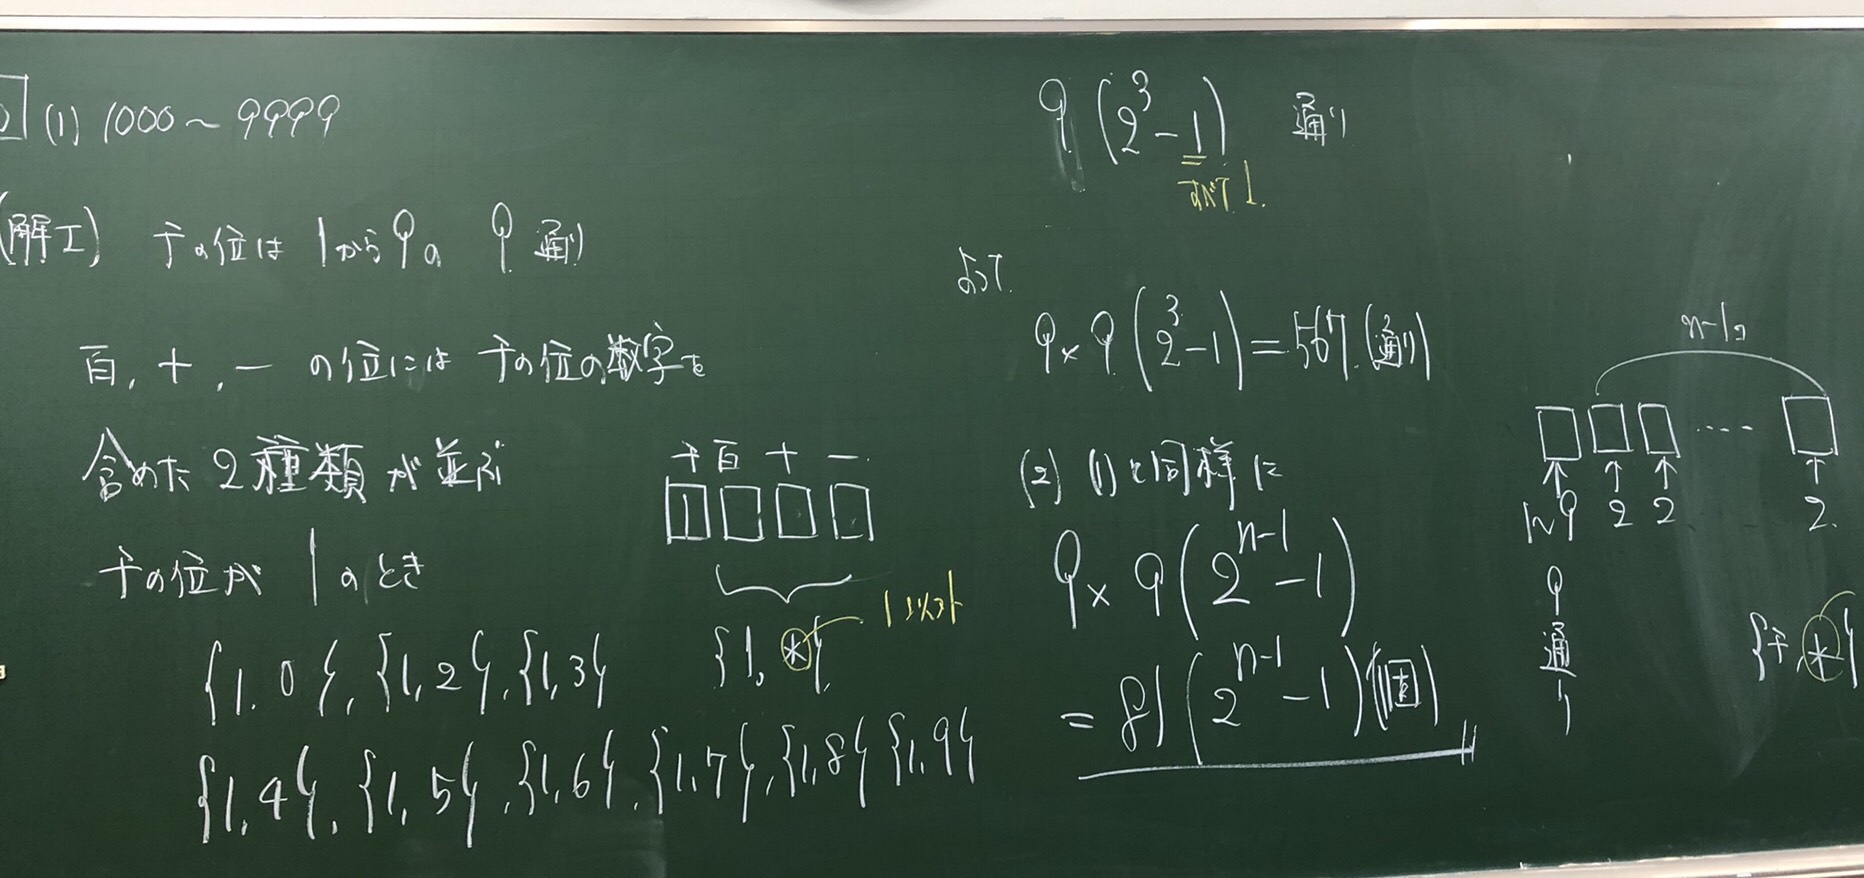 (1) 1000～9999
(解I) 千の位は 1から9の 9通り
百, 十, 一 の位には 千の位の数字を
含めた 2種類 が並ぶ
千の位が 1のとき
{1, 0}, {1, 2}, {1, 3}
{1, 4}, {1, 5}, {1, 6}, {1, 7}, {1, 8} {1, 9}
千 百 十 一
1
{1, *}
1以外
9(2^3-1) 通り
すべて1.
よって.
9×9(2^3-1)=567(通り)
(2) (1)と同様に
9×9(2^{n-1}-1)
=81(2^{n-1}-1)(個)
n-1コ
....
↑ ↑ ↑ ↑
1～9 2 2 2.
9通り
{千, *}